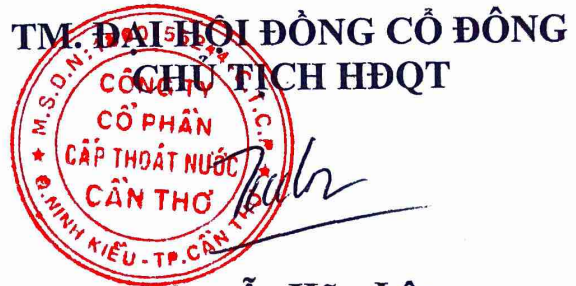 TM. ĐẠI HỘI ĐỒNG CỔ ĐÔNG
CHỦ TỊCH HĐQT
CÔNG TY
CỔ PHẦN
CẤP THOÁT NƯỚC
CẦN THƠ
Q.NINH KIỀU - TP.CẦN THƠ